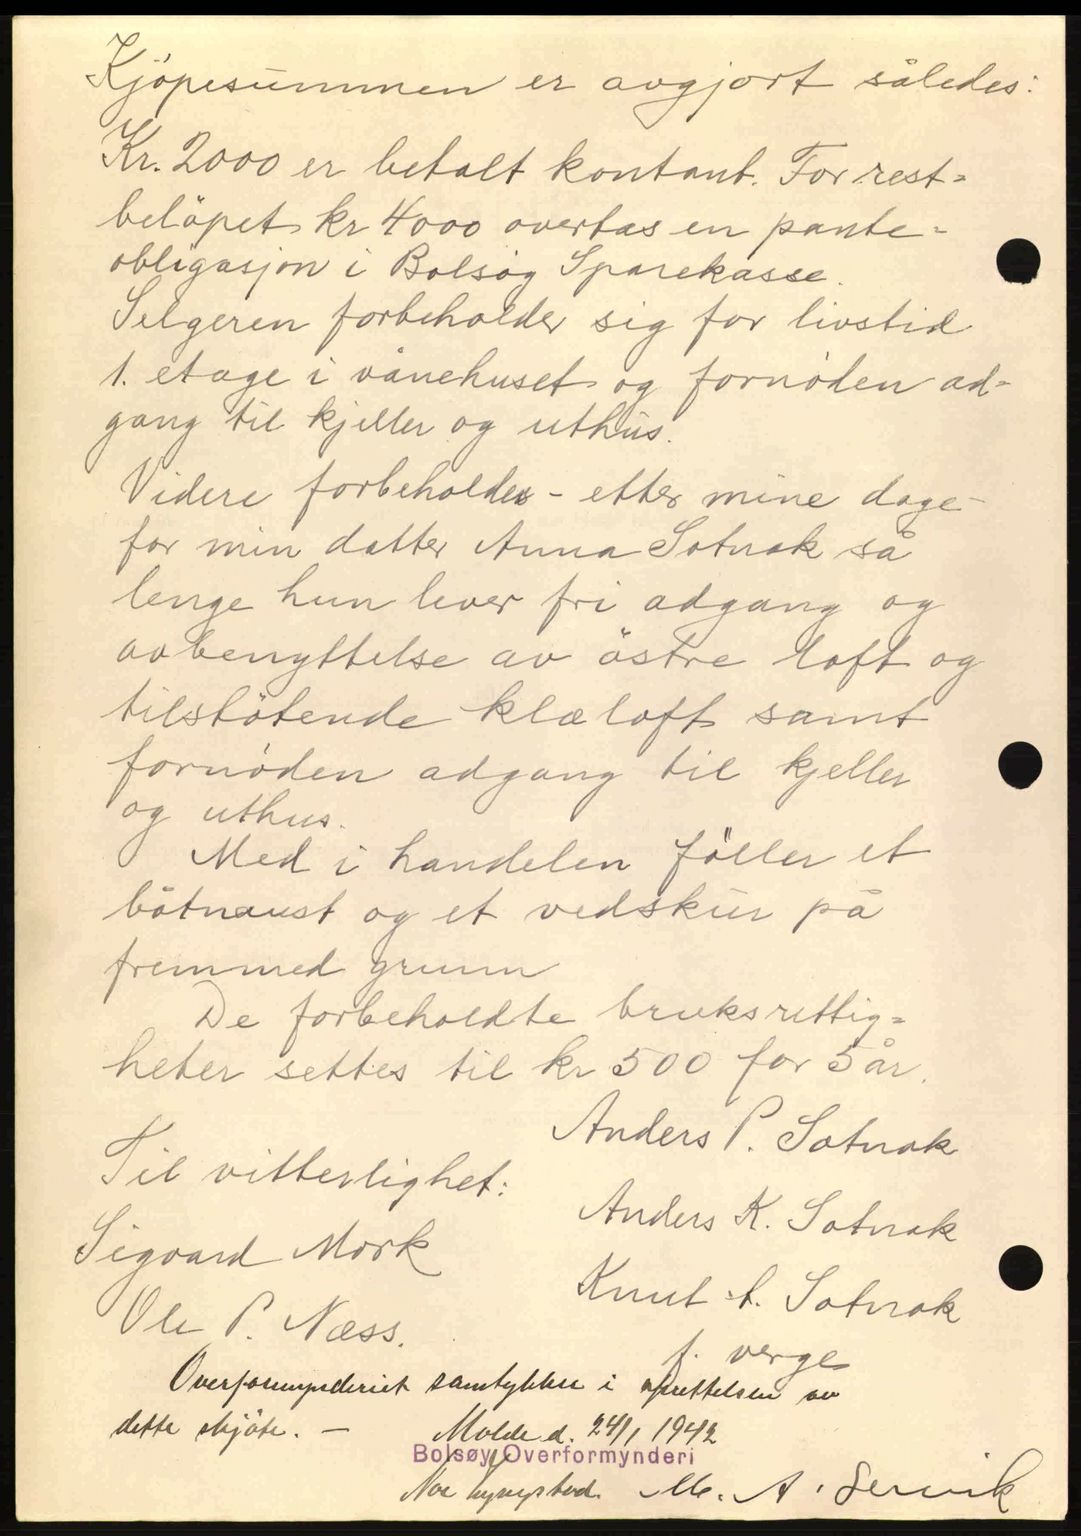 Kjöpesummen er avgjort således:
Kr. 2000 er betalt kontant. For rest=
belöpet kr 4000 overtas en pante=
obligasjon i Bolsöy Sparekasse.
Selgeren forbeholder sig for livstid
1. etage i vånehuset og fornöden ad=
gang til kjeller og uthus.
Videre forbeholdes - etter mine dage -
for min datter Anna Sotnak så
lenge hun lever fri adgang og
avbenyttelse av östre loft og
tilstötende klæloft samt
fornöden adgang til kjeller
og uthus.
Med i handelen föller et
båtnaust og et vedskur på
fremmed grunn
De forbeholdte bruksrettig=
heter settes til kr 500 for 5 år.
Anders P. Sotnak
Til vitterlighet:
Anders K. Sotnak
Sigvard Mork
Knut A. Sotnak
Ole P. Næss.
f. verge
Overformynderiet samtykker i oprettelsen av
dette skjöte. - Molde d. 24/1 1942
Bolsøy Overformynderi
M. A. Lervik